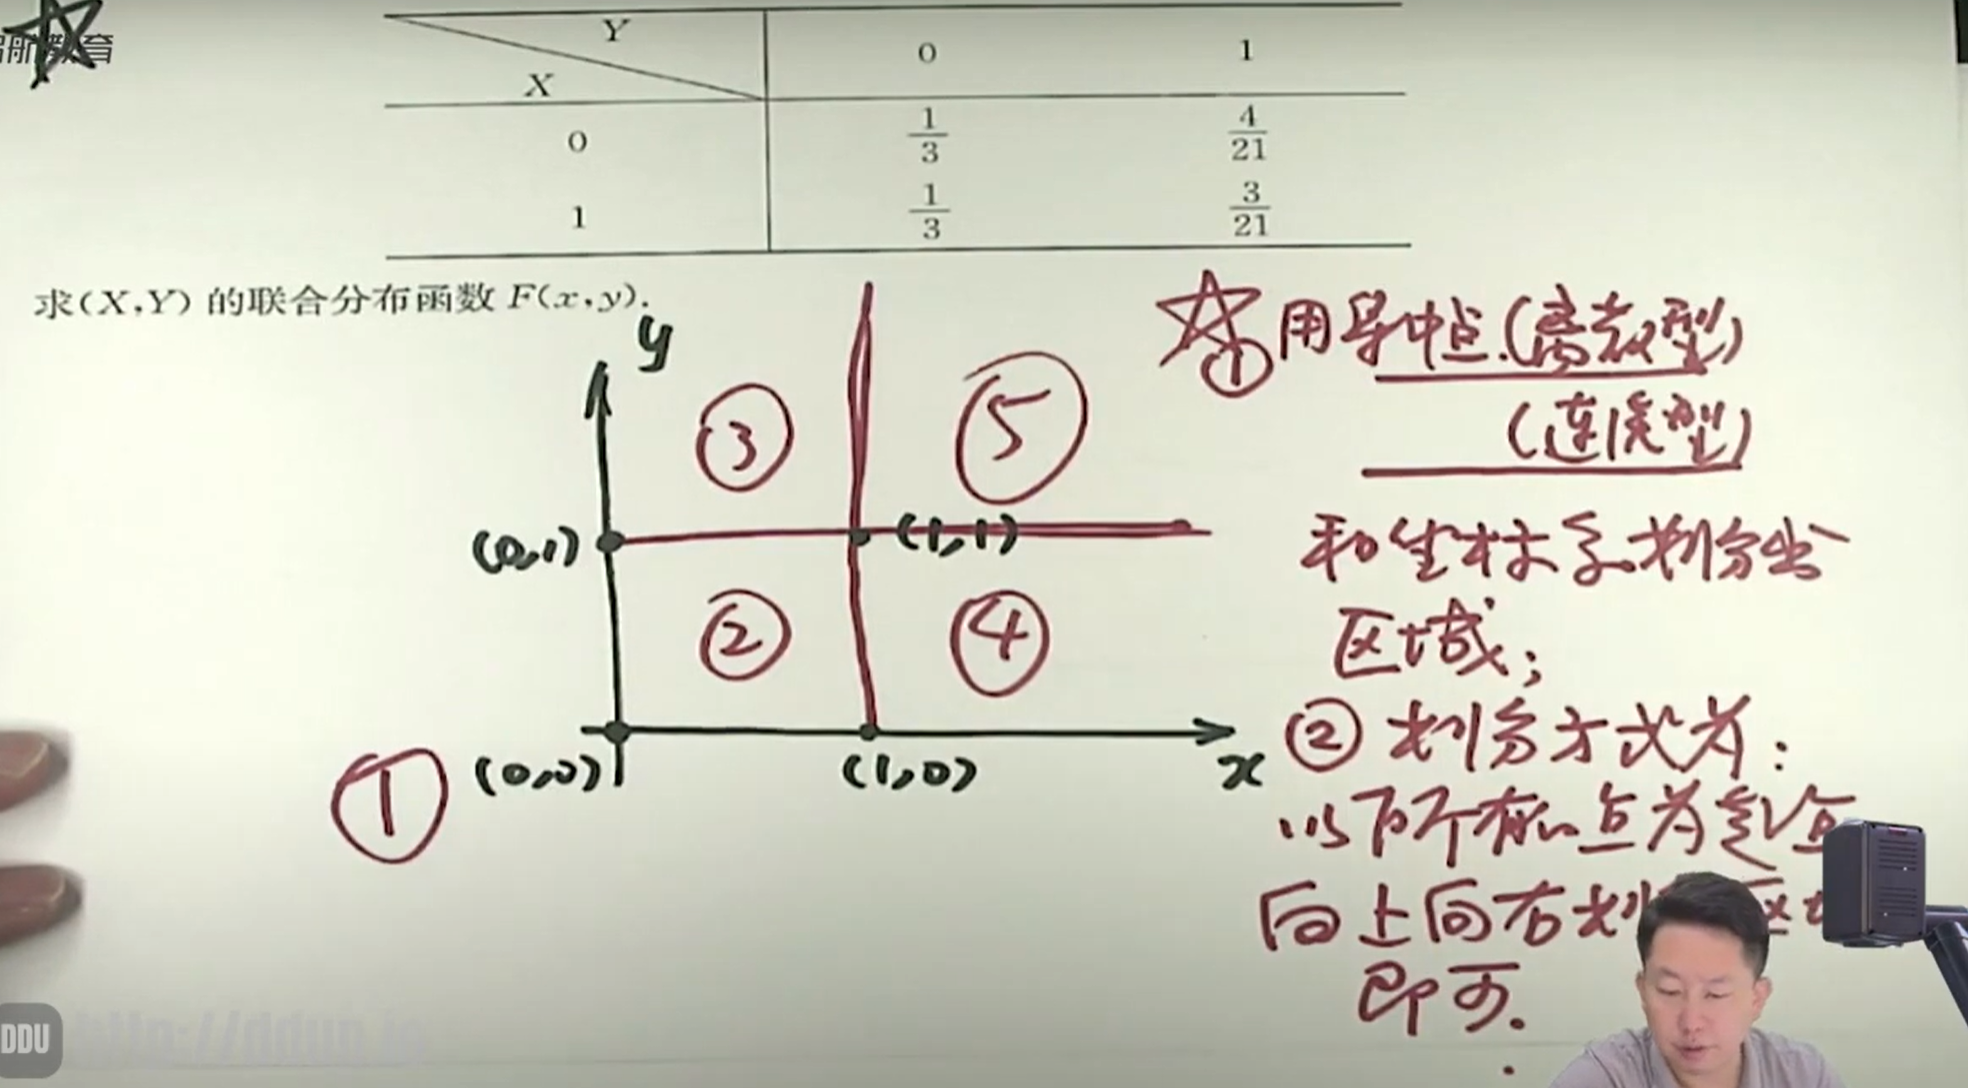 智航教育
Y
X
0
1
0
1/3
4/21
1
1/3
3/21
求(X,Y)的联合分布函数F(x,y).
y
③
⑤
(0,1)
(1,1)
②
④
①
(0,0)
(1,0)
x
①用集中点.(离散型)
(连续型)
和坐标系划分出
区域;
②划分方式为:
以下所有的点为起点
向上向右划
即可.
DDU